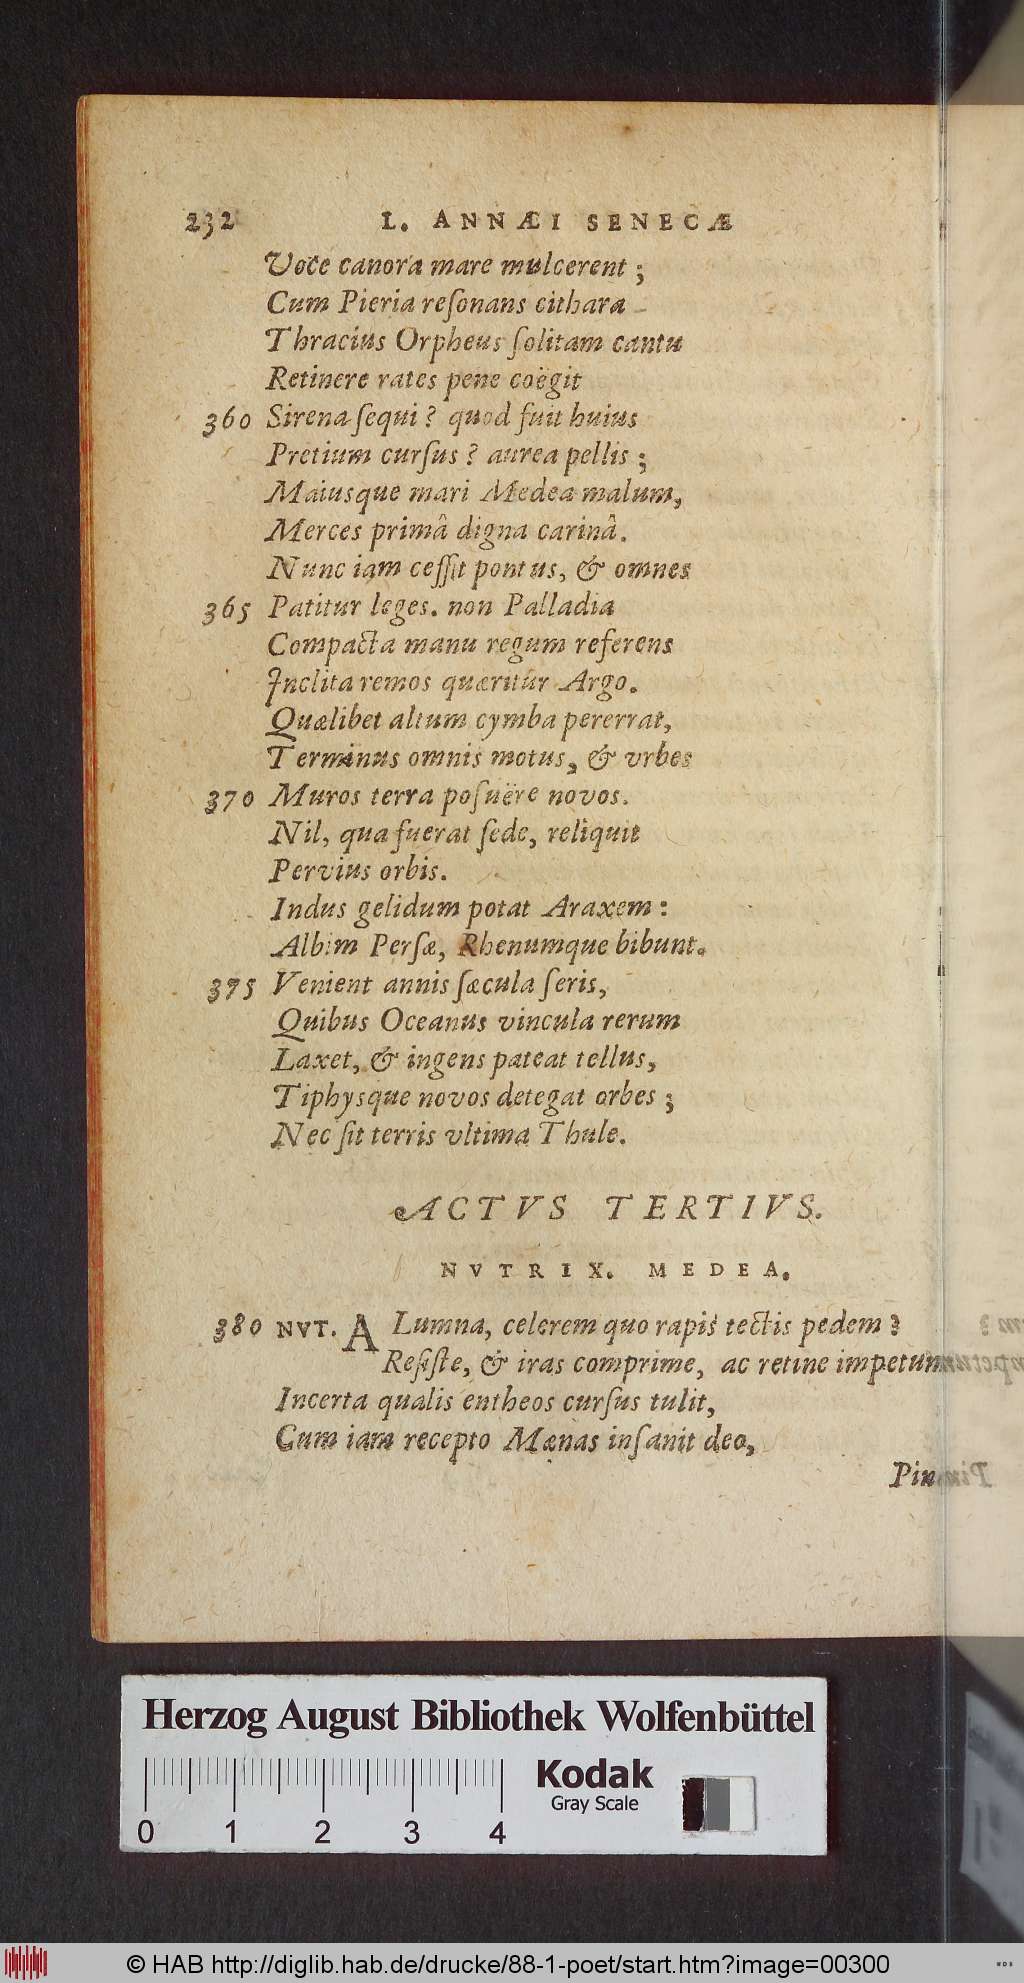 232 L. ANNÆI SENECÆ
Voce canora mare mulcerent;
Cum Pieria reſonans cithara
Thracius Orpheus ſolitam cantu
Retinere rates pene coëgit
360 Sirena ſequi? quod fuit huius
Pretium curſus? aurea pellis;
Maiusque mari Medea malum,
Merces primâ digna carinâ.
Nunc iam ceſſit pontus, & omnes
365 Patitur leges. non Palladia
Compacta manu regum referens
Inclita remos quæritur Argo.
Quælibet altum cymba pererrat,
Terminus omnis motus, & vrbes
370 Muros terra poſuëre novos.
Nil, qua fuerat ſede, reliquit
Pervius orbis.
Indus gelidum potat Araxem:
Albim Perſæ, Rhenumque bibunt.
375 Venient annis ſæcula ſeris,
Quibus Oceanus vincula rerum
Laxet, & ingens pateat tellus,
Tiphysque novos detegat orbes;
Nec ſit terris vltima Thule.
ACTVS TERTIVS.
NVTRIX. MEDEA.
380 NVT. ALumna, celerem quo rapis tectis pedem?
Reſiſte, & iras comprime, ac retine impetum
Incerta qualis entheos curſus tulit,
Cum iam recepto Mænas inſanit deo,
Pin
Herzog August Bibliothek Wolfenbüttel
Kodak
Gray Scale
0 1 2 3 4
© HAB http://diglib.hab.de/drucke/88-1-poet/start.htm?image=00300